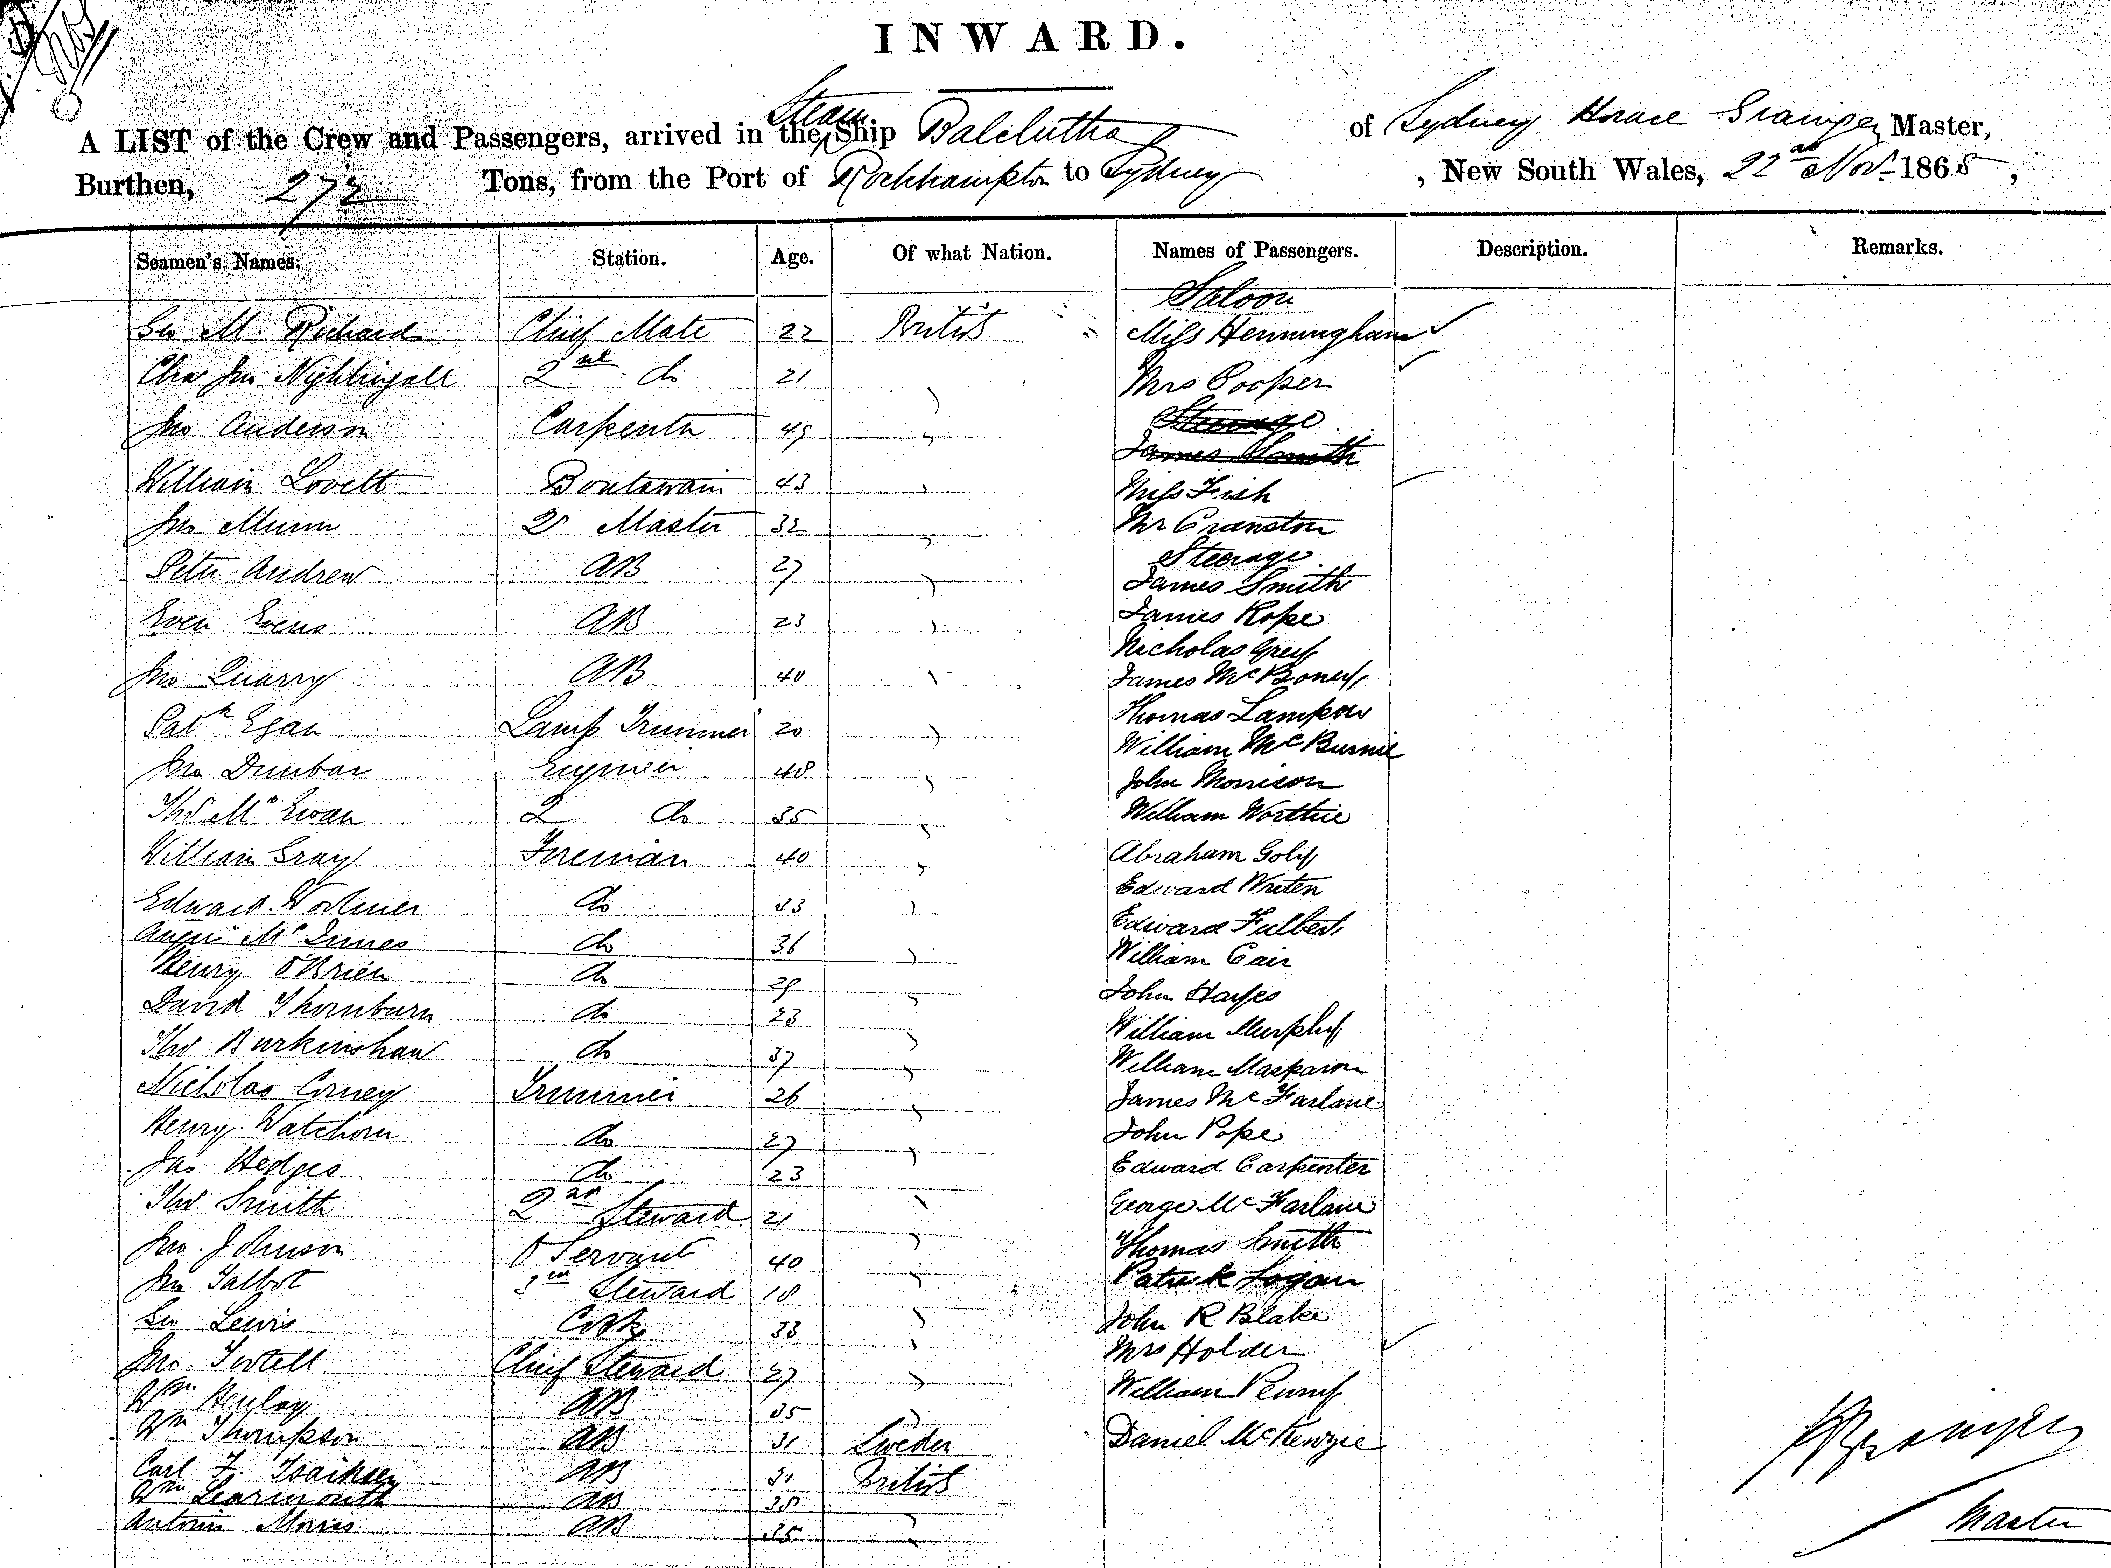 INWARD.
A LIST of the Crew and Passengers, arrived in the Steam Ship Balclutha of Sydney Grainger Master,
Burthen, 272 Tons, from the Port of Rockhampton to Sydney, New South Wales, 22nd Nov. 1865,
Seamen's Names. Station. Age. Of what Nation. Names of Passengers. Description. Remarks.
Saloon
Geo M Richard Chief Mate 22 British Miss Henningham
Chas Jno Nightingall 2nd do 21 " Mrs Cooper
Jno Anderson Carpenter 49 " Steerage
James Smith
William Lovett Boatswain 43 " Miss Fish
Jno Munn Qr Master 32 " Mr Cranston
Steerage
Peter Andrew AB 27 " James Smith
Even Evens AB 23 " James Rope
Nicholas Grey
Jno Quarry AB 40 " James Mc
Patk Egan Lamp Trimmer 20 " Thomas
William McBurnie
Jno Dunbar Engineer 48 " John Morrison
Thos McEwan 2 do 35 " William Worthie
William Gray Fireman 40 " Abraham
Edward do 33 " Edward Writen
Angus McInnes do 36 " Edward
Henry O'Brien do 29 " William Cair
David Thornburn do 23 " John Hayes
Thos Burkinshaw do 37 " William Murphy
Nicholas Corney Trimmer 26 " William
James McFarlane
Henry Watchorn do 27 " John Pope
Jas Hedges do 23 Edward Carpenter
Thos Smith 2nd Steward 21 " George McFarlane
Jno Johnson Servant 40 " Thomas Smith
Jno Talbot Steward 18 " Patrick Logan
Geo Lewis Cook 33 " John R Blake
Jno Chief Steward 27 " Mrs Holder
Wm AB 35 " William
Wm Thompson AB 31 Sweden Daniel McKenzie
Carl F AB British
Wm Learmouth AB 38
Antoni AB 35 "
Grainger
Master